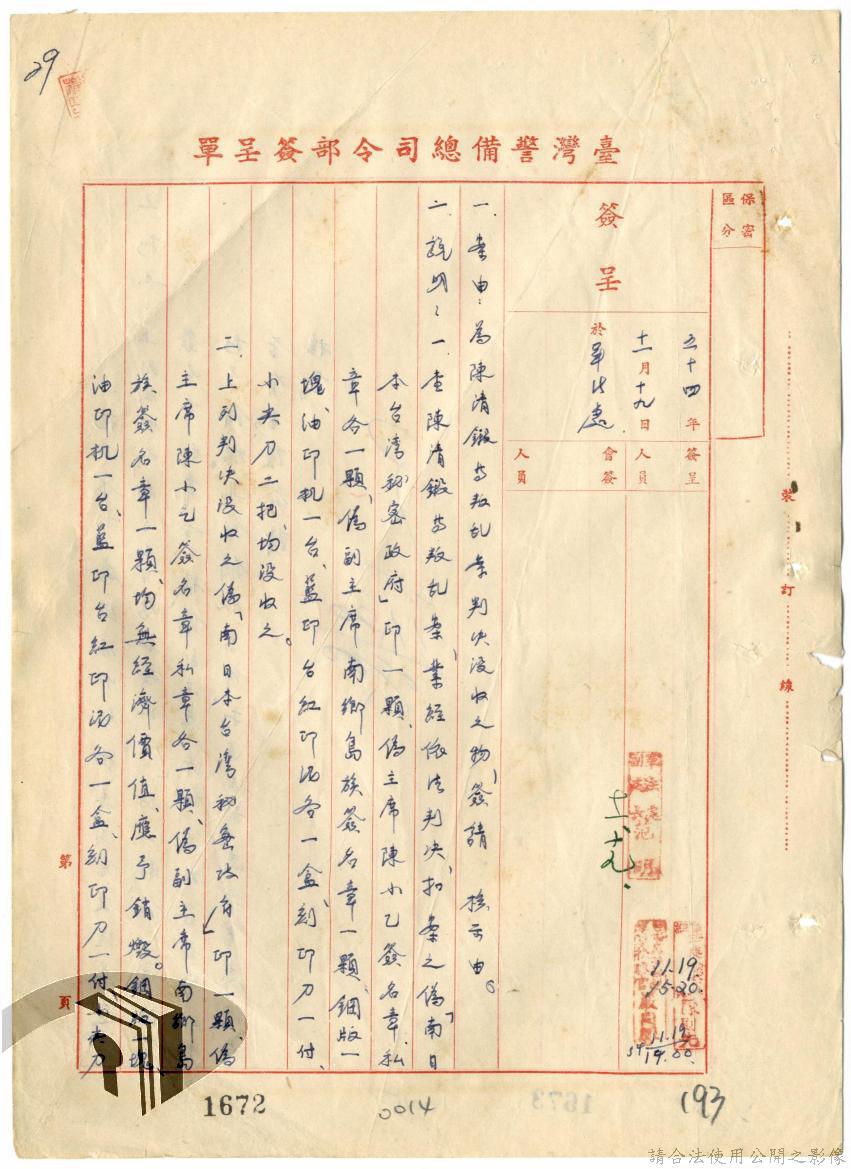 29
臺灣警備總司令部簽呈單
保密區分
簽呈
五十四年十一月十九日
於軍法處
簽呈人員
會簽人員
一、案由：為陳清鍛等叛乱案判决沒收之物，簽請　核示由。
二、說明：一、查陳清鍛等叛乱案，業經依法判决，扣案之偽「南日
本台湾秘密政府」印一顆，偽主席陳小乙簽名章、私
章各一顆，偽副主席南鄉島族簽名章一顆，鋼版一
塊，油印机一台，藍印台紅印泥各一盒，刻印刀一付，
小尖刀二把，均沒收之。
二、上列判决沒收之偽「南日本台湾秘密政府」印一顆，偽
主席陳小乙簽名章私章各一顆，偽副主席南鄉島
族簽名章一顆，均無經濟價值，應予銷燬。鋼版一塊、
油印机一台、藍印台紅印泥各一盒、刻印刀一付小尖刀
十一、十九、
11.19
15.20.
54 11.19
14.00.
裝訂線
第頁
1672
0014
193
請合法使用公開之影像